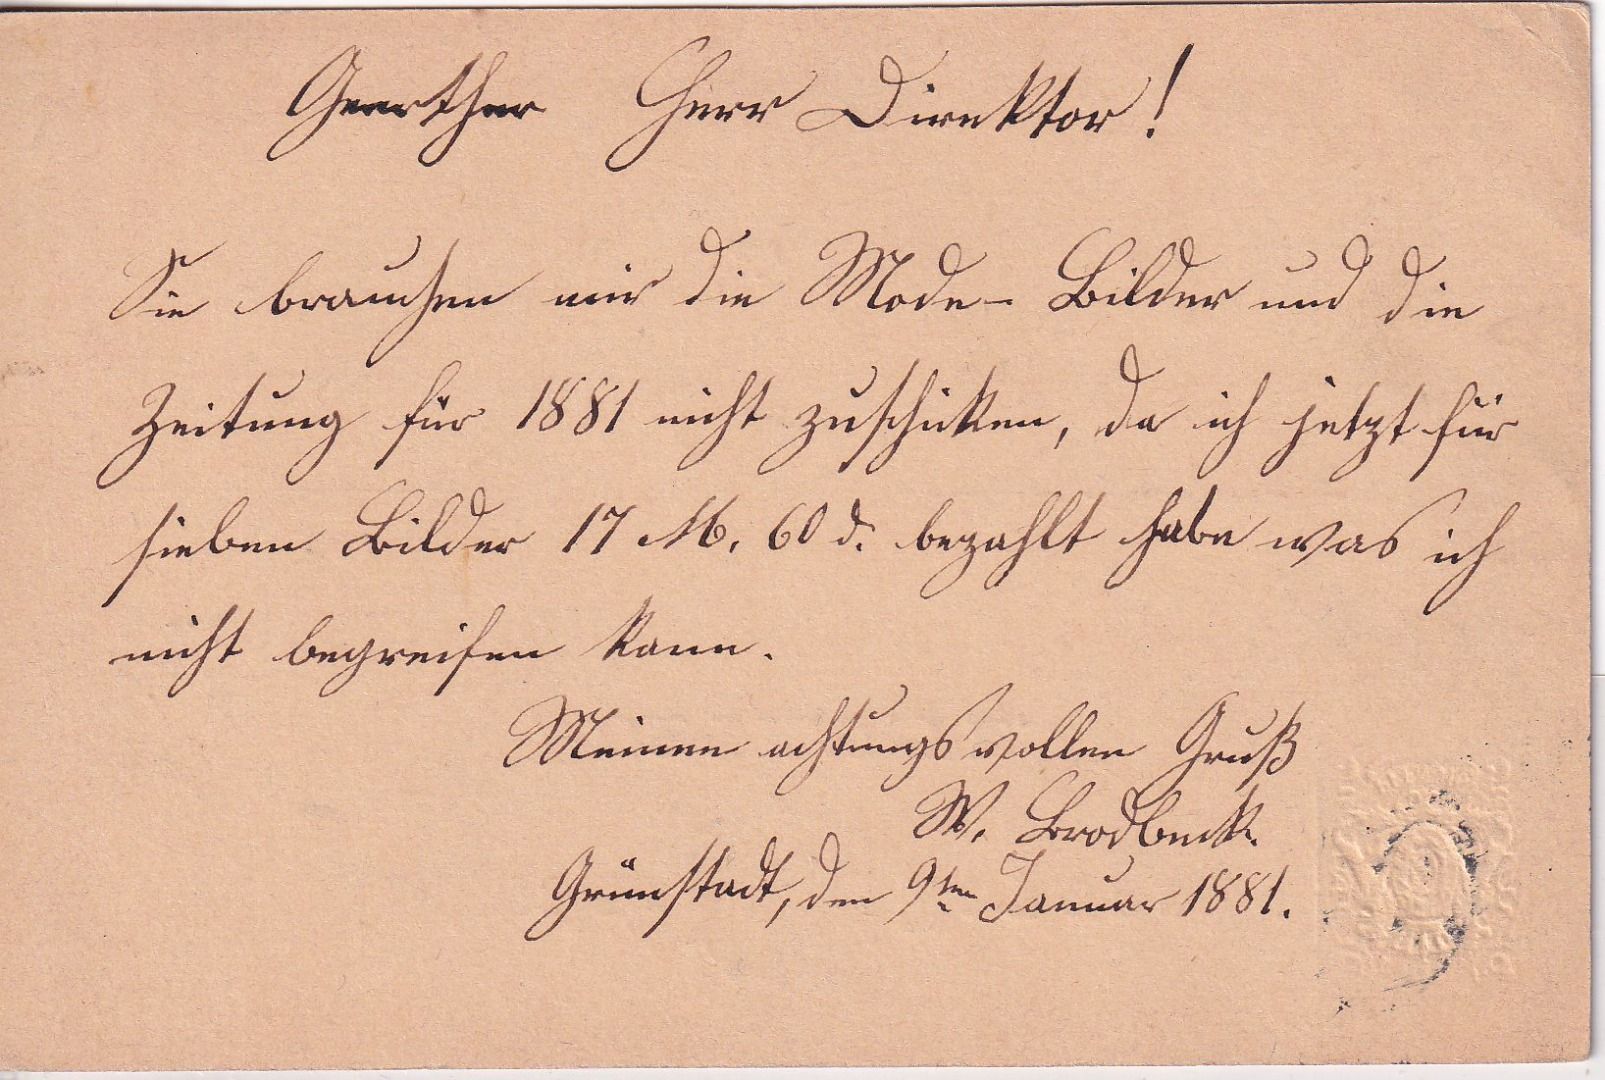 Geerther Herr Direktor!
Sie brauchen mir die Mode- Bilder und die
Zeitung für 1881 nicht zuschicken, da ich jetzt für
sieben Bilder 17 M. 60 d. bezahlt habe was ich
nicht begreifen kann.
Meinen achtungsvollen Gruß
W. Brodbeck.
Grünstadt, den 9ten Januar 1881.